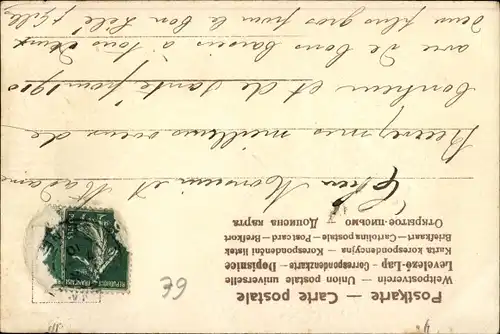 Postkarte — Carte postale
Weltpostverein — Union postale universelle
Levelező-Lap — Correspondenzkarte — Dopisnice
Karta korespondencyjna — Korespondenční lístek
Briefkaart — Cartolina postale — Postcard — Brefkort
Открытое письмо — Дописна карта
Cher Monsieur et Madame
Recevez mes meilleurs voeux de
bonheur et de santé pour 1910
avec de bons baisers à tous deux
deux plus gros pour la bon Lélé
REPUBLIQUE FRANCAISE
6€